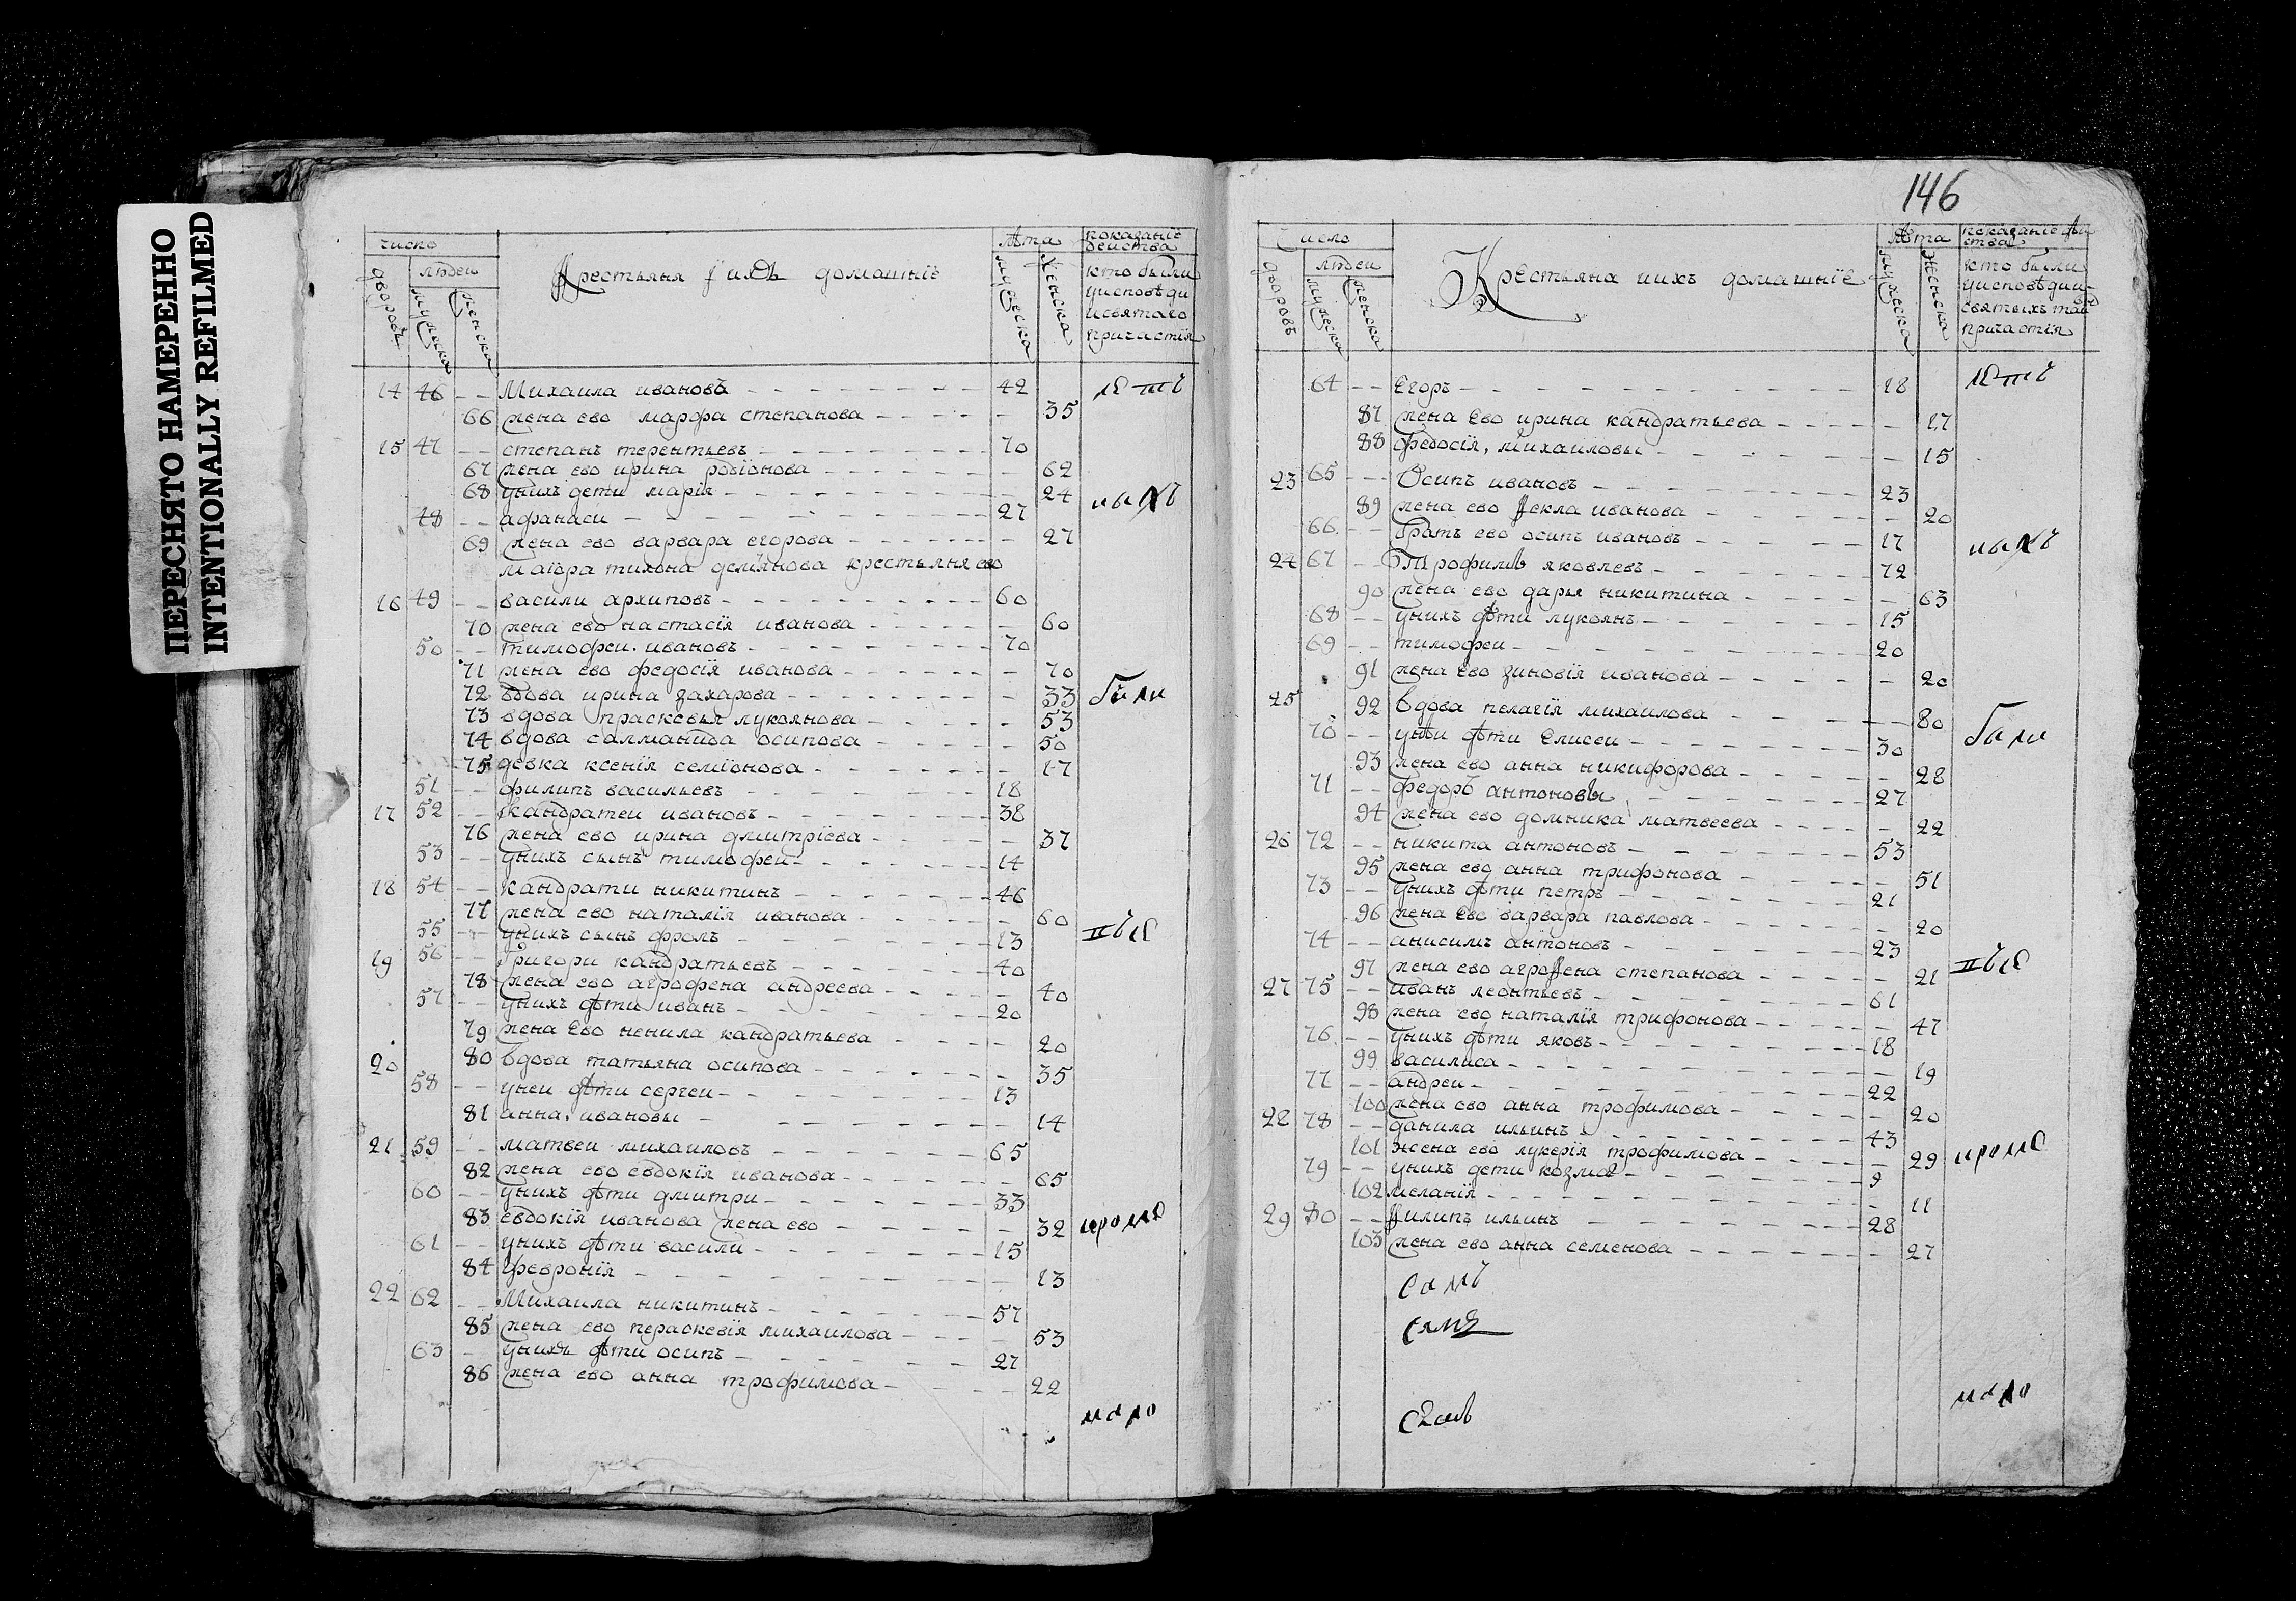 ПЕРЕСНЯТО НАМЕРЕННО
INTENTIONALLY REFILMED
число
людеи
дворовъ
мужеска
женска
Крестьяня і ихъ домашнїе
лѣта
мужеска
женска
показанїе
деиства
кто были
уисповѣди
исвятаго
причастия
14 46 - - Михаила ивановъ - - 42
66 жена ево марфа степанова - - 35
15 47 - - степанъ терентьевъ - - 70
67 жена ево ирина родїонова - - 62
68 унихъ дети марїя - - 24
48 - - афанаси - - 27
69 жена ево варвара егорова - - 27
маїора тихона демїянова крестьяня ево
16 49 - - васили архиповъ - - 60
70 жена ево настасїя иванова - - 60
50 - - тимофеи ивановъ - - 70
71 жена ево федосїя иванова - - 70
72 вдова ирина захарова - - 33 были
73 вдова прасковья лукоянова - - 53
74 вдова салманида осипова - - 50
75 девка ксенїя семїонова - - 17
51 - - филипъ васильевъ - - 18
17 52 - - кандратеи ивановъ - - 38
76 жена ево ирина дмитрїева - - 37
53 - - унихъ сынъ тимофеи - - 14
18 54 - - кандрати никитинъ - - 46
77 жена ево наталїя иванова - - 60
55 - - унихъ сынъ фролъ - - 13
19 56 - - Григори кандратьевъ - - 40
78 жена ево агрофена андреева - - 40
57 - - унихъ дѣти иванъ - - 20
79 жена Ево ненила кандратьева - - 20
20 80 вдова татьяна осипова - - 35
58 - - унеи дѣти сергеи - - 13
81 анна, ивановы - - 14
21 59 - - матвеи михаиловъ - - 65
82 жена ево евдокїя иванова - - 65
60 - - унихъ дѣти дмитри - - 33
83 евдокїя иванова жена ево - - 32
61 - - унихъ дѣти васили - - 15
84 февронїя - - 13
22 62 - - Михаила никитинъ - - 57
85 жена ево параскевїя михаилова - - 53
63 - унихъ дѣти осипъ - - 27
86 жена ево анна трофимова - - 22
мало
146
Число
людеи
дворовъ
мужеска
женска
Крестьяна иихъ домашнїе
лѣта
мужеска
женска
показанїе дѣи
ства
кто были
уисповѣди и
святыхъ таи
причастїя
64 - - Егоръ - - 18
87 жена Ево ирина кандратьева - - 17
88 федосїя, михаиловы - - 15
23 65 - - Осипъ ивановъ - - 23
89 жена ево Фекла иванова - - 20
66 - - братъ ево осипъ ивановъ - - 17
24 67 - - Трофимъ яковлевъ - - 72
90 жена ево дарья никитина - - 63
68 - - унихъ дѣти лукоянъ - - 15
69 - - тимофеи - - 20
91 жена ево зиновїя иванова - - 20
25 92 вдова пелагїя михаилова - - 80
70 - - унеи дѣти Елисеи - - 30 были
93 жена ево анна никифорова - - 28
71 - - федоръ антоновы - - 27
94 жена ево домника матвеева - - 22
26 72 - - никита антоновъ - - 53
95 жена ево анна трифонова - - 51
73 - - унихъ дѣти петръ - - 21
96 жена Ево варвара павлова - - 20
74 - - анисимъ антоновъ - - 23
97 жена ево агрофена степанова - - 21
27 75 - - иванъ леонтьевъ - - 61
98 жена ево наталїя трифонова - - 47
76 - - унихъ дѣти яковъ - - 18
99 василиса - - 19
77 - - андреи - - 22
100 жена ево анна трофимова - - 20
22 78 - - данила ильинъ - - 43
101 жена ево лукерїя трофимова - - 29
79 - - унихъ дети козма - - 9
102 меланїя - - 11
29 80 - - Филипъ ильинъ - - 28
103 жена ево анна семенова - - 27
мало